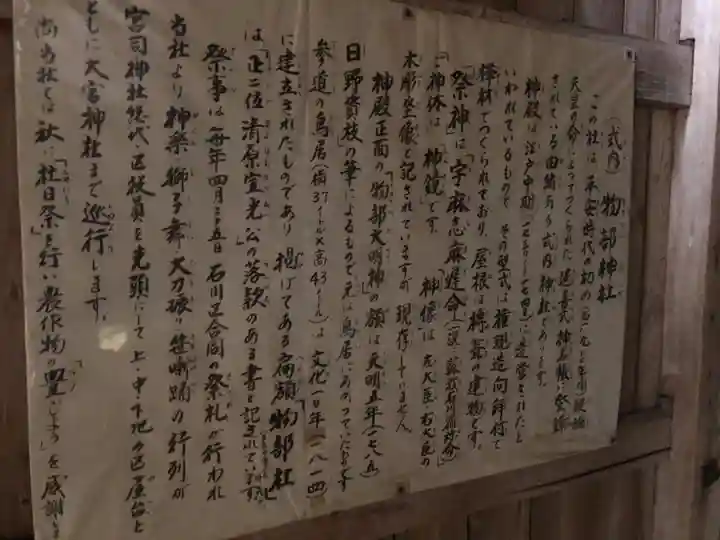 (式内) 物部神社
この社は、平安時代の初め
天皇の命によってつくられた延喜式神名帳に登録
されている由緒ある式内神社であります。
神殿は江戸中期に造営されたと
いわれているもので、その型式は権現造向拝付で
欅材でつくられており、屋根は檜葺の建物です。
「祭神」は「宇麻志麻遅命」
「御神体」は「神鏡」です。「神像」は左大臣右大臣の
木彫坐像と記されていますが現存していません。
神殿正面の「物部大明神」の額は天明五年(一七八五)
日野資枝の筆によるもので元は鳥居にあがっていたものです
参道の鳥居(横37メートル×高43メートル)は文化十一年(一八一四)
に建立されたものであり掲げてある扁額「物部社」
は「正二位清原宣光」公の落款のある書と記されています。
祭事は毎年四月三・五日石川区合同の祭礼が行われ
当社より神楽・獅子舞・太刀振り・笹噺踊の行列が
宮司・神社総代・区役員を先頭にして上・中・下地の区屋台と
ともに大宮神社まで巡行します。
尚当社では秋に「社日祭」を行い農作物の「豊じょう」を感謝し